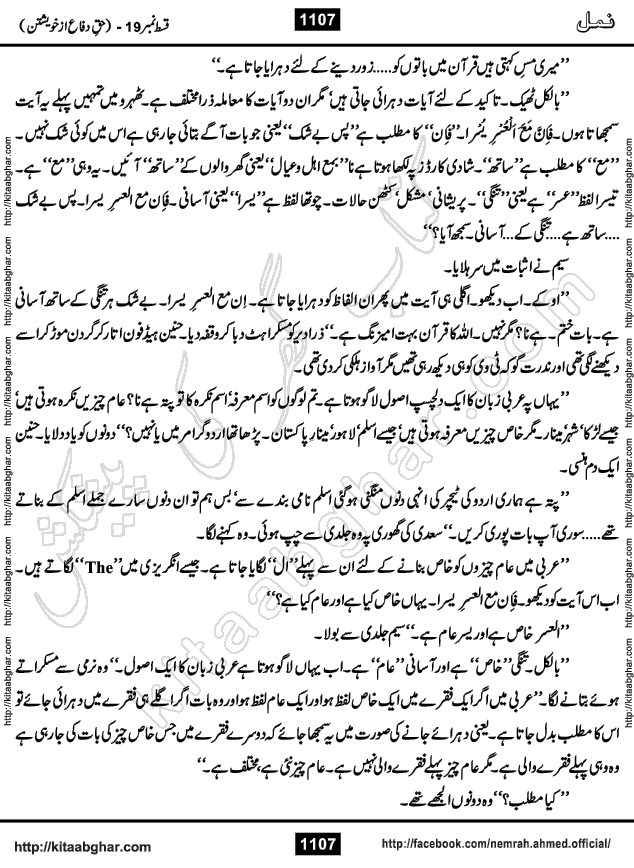 نمل
1107
قسط نمبر 19 - (حقِ دفاع از خویشتن)
’’میری مس کہتی ہیں قرآن میں باتوں کو.....زور دینے کے لئے دہرایا جاتا ہے۔‘‘
’’بالکل ٹھیک۔ تاکید کے لئے آیات دہرائی جاتی ہیں‘ مگر ان دو آیات کا معاملہ ذرا مختلف ہے۔ ٹھہرو میں تمہیں پہلے یہ آیت
سمجھاتا ہوں۔ فَاِنَّ مَعَ الْعُسْرِ یُسْرًا۔ ’’فاِن‘‘ کا مطلب ہے ’’پس بے شک‘‘ یعنی جو بات آگے بتائی جا رہی ہے اس میں کوئی شک نہیں۔
’’مع‘‘ کا مطلب ہے ’’ساتھ‘‘۔ شادی کارڈز پہ لکھا ہوتا ہے نا ’’بمع اہل و عیال‘‘ یعنی گھر والوں کے ’’ساتھ‘‘ آئیں۔ یہ وہی ’’مع‘‘ ہے۔
تیسرا لفظ ’’عسر‘‘ ہے یعنی ’’تنگی‘‘۔ پریشانی‘ مشکل‘ کٹھن حالات۔ چوتھا لفظ ہے ’’یسرا‘‘ یعنی آسانی۔ فاِن مع العسرِ یسرا۔ پس بے شک
....ساتھ ہے....تنگی کے... آسانی۔ سمجھ آیا؟‘‘
سیم نے اثبات میں سر ہلایا۔
’’اوکے۔ اب دیکھو۔ اگلی ہی آیت میں پھر ان الفاظ کو دہرایا ہے۔ اِن مع العسرِ یسرا۔ بے شک ہر تنگی کے ساتھ آسانی
ہے۔ بات ختم۔ ہے نا؟ مگر نہیں۔ اللہ کا قرآن بہت امیزنگ ہے۔‘‘ ذرا دیر کو مسکراہٹ دبا کر وقفہ دیا۔ حنین ہیڈفون اتار کر گردن موڑ کر اسے
دیکھنے لگی تھی اور ندرت گو کہ ٹی وی کو ہی دیکھ رہی تھیں مگر آواز ہلکی کر دی تھی۔
’’یہاں پہ عربی زبان کا ایک دلچسپ اصول لاگو ہوتا ہے۔ تم لوگوں کو اسم معرفہ‘ اسم نکرہ کا تو پتہ ہے نا؟ عام چیزیں نکرہ ہوتی ہیں‘
جیسے لڑکا‘ شہر‘ مینار۔ مگر خاص چیزیں معرفہ ہوتی ہیں‘ جیسے اسلم‘ لاہور‘ مینارِ پاکستان۔ پڑھا تھا اردو گرامر میں یا نہیں؟‘‘ دونوں کو یاد دلایا۔ حنین
ایک دم ہنسی۔
’’پتہ ہے ہماری اردو کی ٹیچر کی انہی دنوں منگنی ہو گئی اسلم نامی بندے سے‘ بس ہم تو ان دنوں سارے جملے اسلم کے بناتے
تھے.....سوری آپ بات پوری کریں۔‘‘ سعدی کی گھوری پہ وہ جلدی سے چپ ہوئی۔ وہ کہنے لگا۔
’’عربی میں عام چیزوں کو خاص بنانے کے لئے ان سے پہلے ’’ال‘‘ لگایا جاتا ہے۔ جیسے انگریزی میں ’’The‘‘ لگاتے ہیں۔
اب اس آیت کو دیکھو۔ فاِن مع العسرِ یسرا۔ یہاں خاص کیا ہے اور عام کیا ہے؟‘‘
’’العسر خاص ہے اور یسر عام ہے۔‘‘ سیم جلدی سے بولا۔
’’بالکل۔ تنگی ’’خاص‘‘ ہے اور آسانی ’’عام‘‘ ہے۔ اب یہاں لاگو ہوتا ہے عربی زبان کا ایک اصول۔‘‘ وہ نرمی سے مسکراتے
ہوئے بتانے لگا۔ ’’عربی میں اگر ایک فقرے میں ایک خاص لفظ ہو اور ایک عام لفظ ہو اور وہ بات اگر اگلے ہی فقرے میں دہرائی جائے تو
اس کا مطلب بدل جاتا ہے۔ یعنی دہرائے جانے کی صورت میں یہ سمجھا جائے کہ دوسرے فقرے میں جس خاص چیز کی بات کی جا رہی ہے
وہ وہی پہلے فقرے والی ہے۔ مگر عام چیز پہلے فقرے والی نہیں ہے۔ عام چیز نئی ہے‘ مختلف ہے۔‘‘
’’کیا مطلب؟‘‘ وہ دونوں الجھے تھے۔
http://kitaabghar.com
1107
http://facebook.com/nemrah.ahmed.official/
http://kitaabghar.com http://kitaabghar.com http://kitaabghar.com http://kitaabghar.com http://kitaabghar.com http://kitaabghar.com
http://kitaabghar.com http://kitaabghar.com http://kitaabghar.com http://kitaabghar.com http://kitaabghar.com http://kitaabghar.com
کتاب گھر کی پیشکش
kitaabghar.com